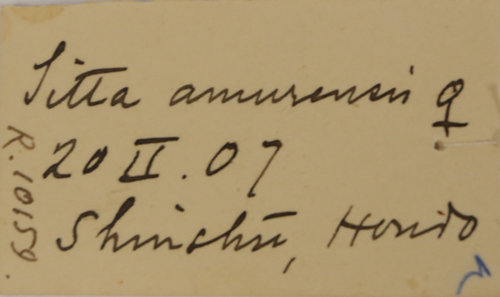 Sitta amurensis ♀
20 II. 07
Shinshū, Hondo
R. 10159.